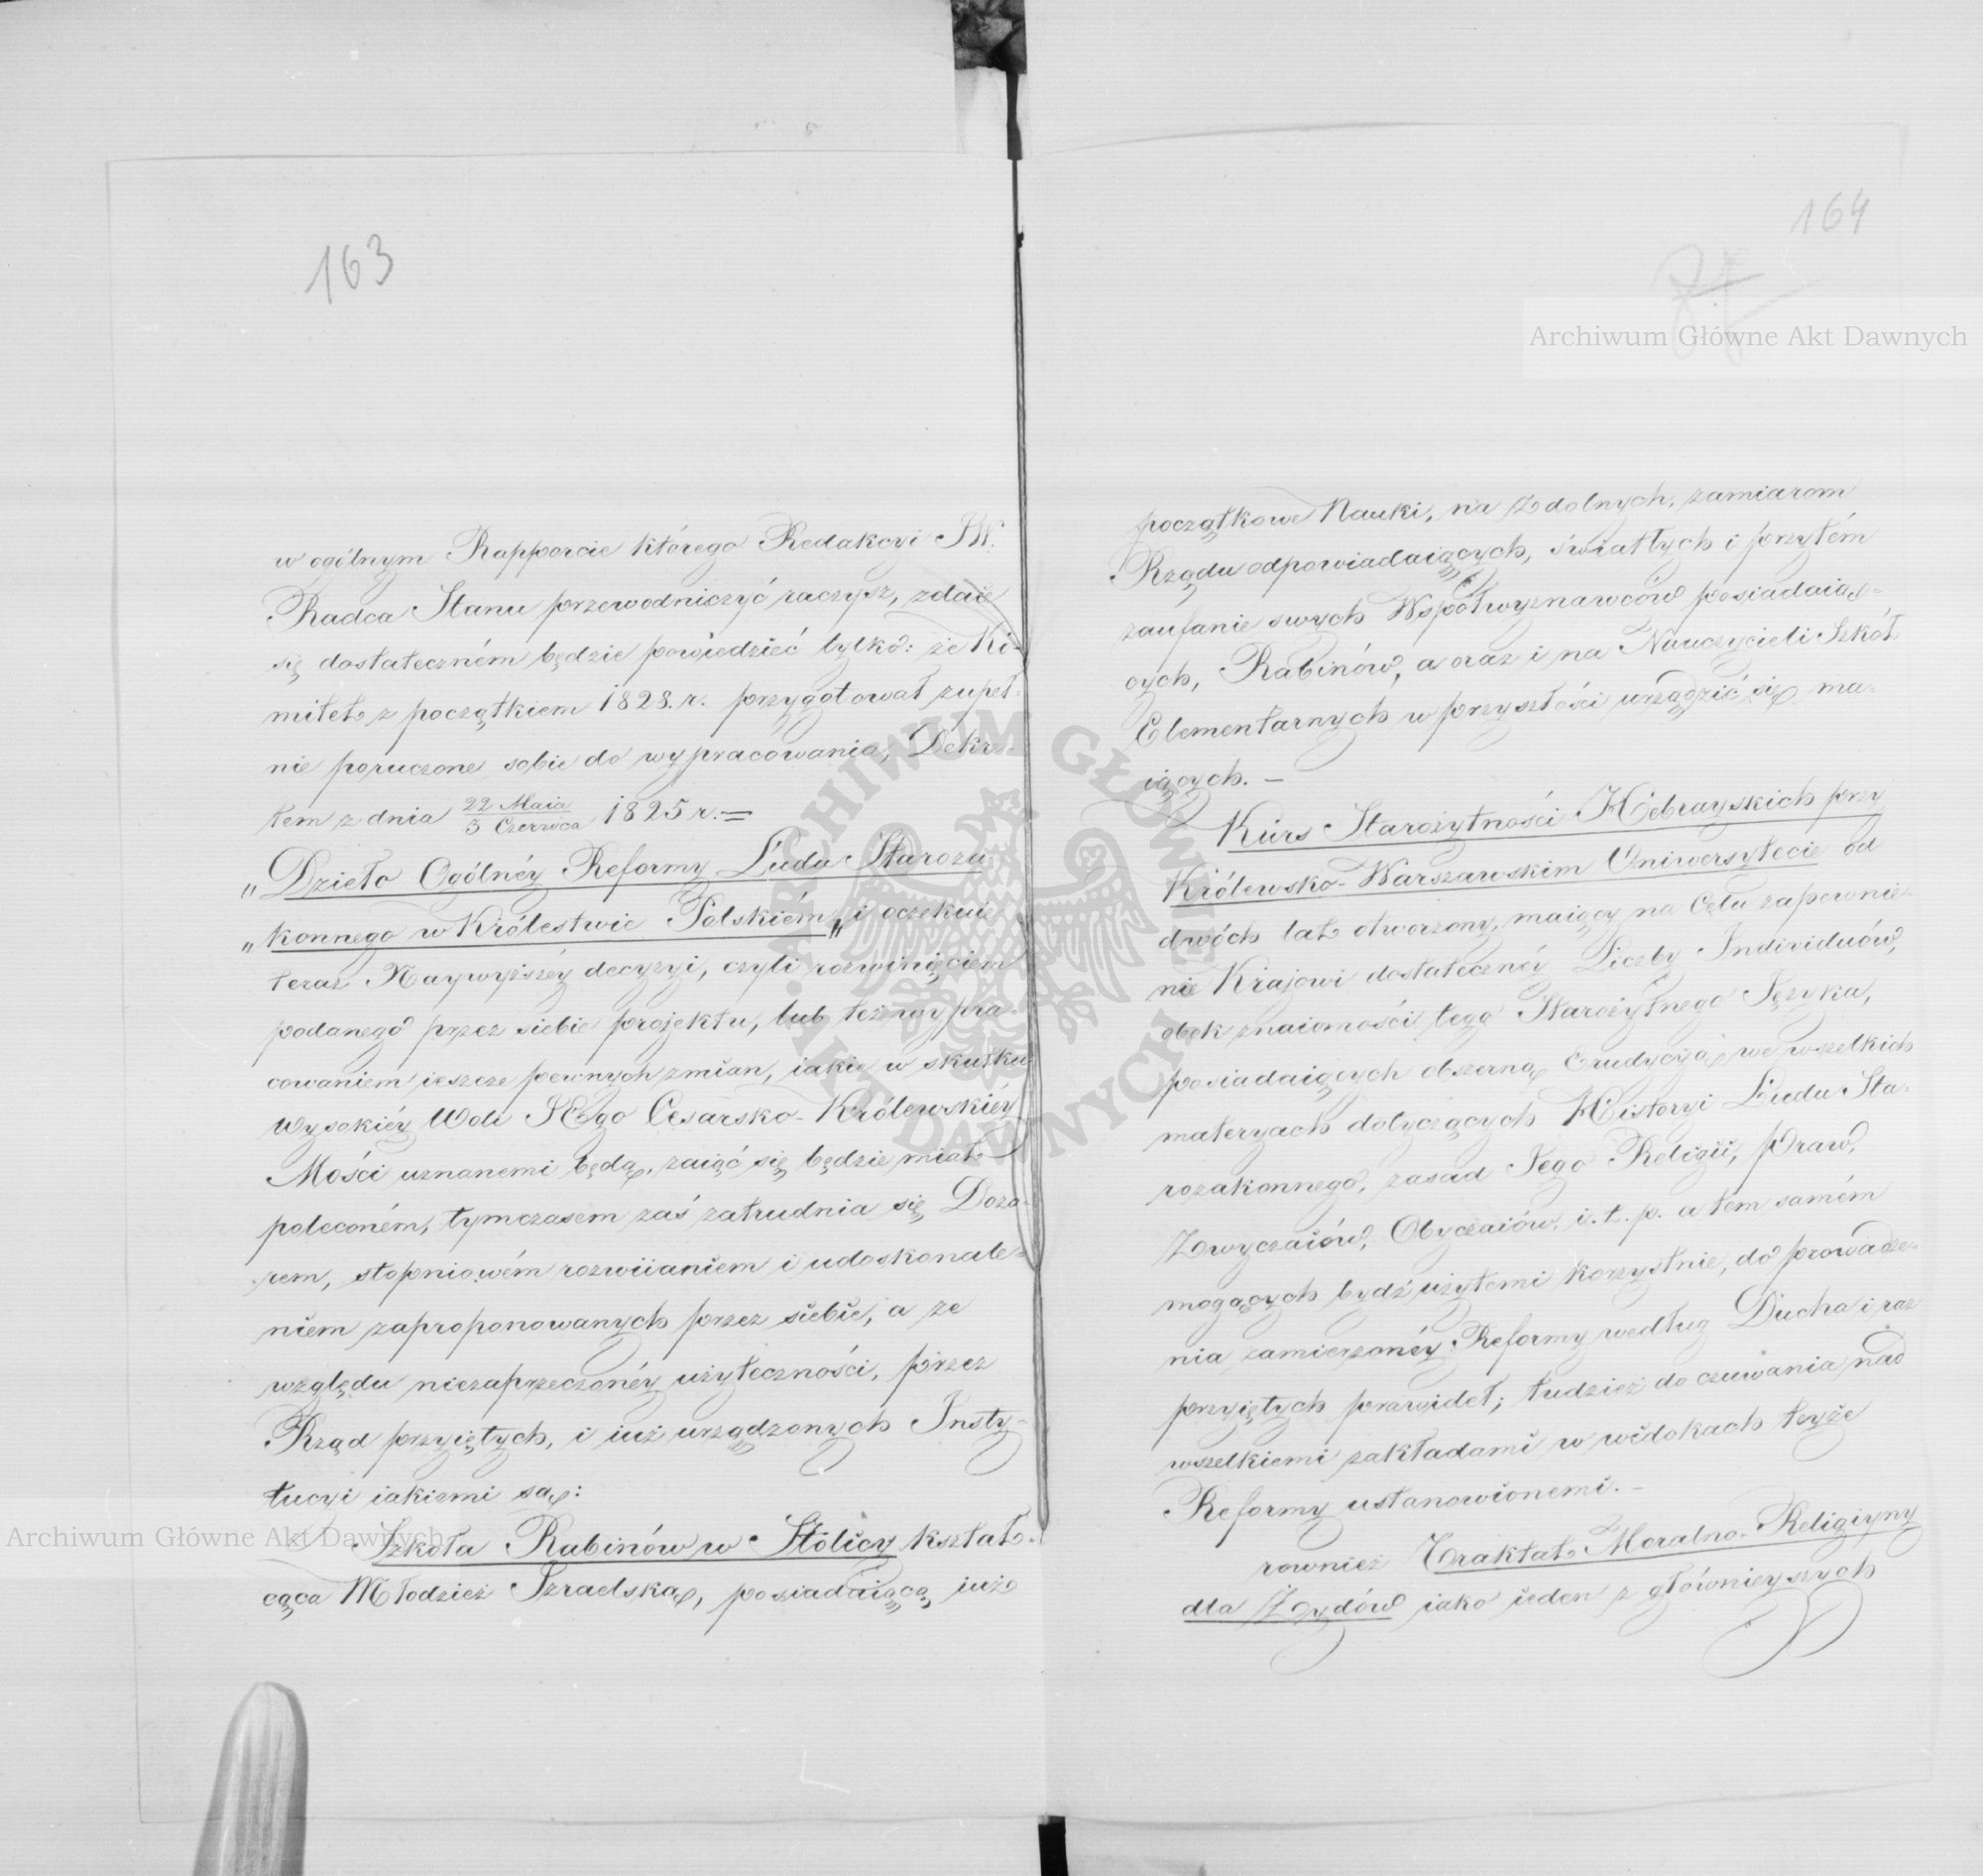 163
w ogólnym Rapporcie którego Redakcyi JW.
Radca Stanu przewodniczyć raczysz, zdaie
się dostateczném będzie powiedzieć tylko: że Ko-
mitet z początkiem 1828. r. przygotował zupeł-
nie poruczone sobie do wypracowania, Dekre-
tem z dnia 22 Maia / 3 Czerwca 1825 r. =
„Dzieło Ogólnéy Reformy Ludu Staroza
„konnego w Królestwie Polskiém„ i oczekuie
teraz Naywyższéy decyzyi, czyli rozwinięciem
podanego przez siebie projektu, lub też wypra-
cowaniem ieszcze pewnych zmian, iakie w skutku
Wysokiéy Woli JEgo Cesarsko-Królewskiéy
Mości uznanemi będą, zaiąć się będzie miał
poleconém, tymczasem zaś zatrudnia się Dozo-
rem, stopniowém rozwiianiem i udoskonale-
niem zaproponowanych przez siebie, a ze
względu niezaprzeczonéy użyteczności, przez
Rząd przyiętych, i iuż urządzonych Insty-
tucyi iakiemi są:
Szkoła Rabinów w Stolicy kształ-
cąca Młodzież Izraelską, posiadaiącą iuż
164
początkowe Nauki, na Zdolnych, zamiarom
Rządu odpowiadaiących, światłych i przytém
zaufanie swych Współwyznawców posiadaią-
cych, Rabinów, a oraz i na Nauczycieli Szkół
Elementarnych w przyszłości urządzić się ma-
iących. —
Kurs Starożytności Hebrayskich przy
Królewsko-Warszawskim Uniwersytecie od
dwóch lat otworzony, maiący na Celu zapewnie-
nie Krajowi dostatecznéy Liczby Individuów,
obok znaiomości tego Starożytnego Języka,
posiadaiących obszerną Erudycyą we wszelkich
materyach dotyczących Historyi Ludu Sta-
rozakonnego, zasad Jego Religii, Praw,
Zwyczaiów, Obyczaiów, i. t. p. a tem samém
mogących bydź użytemi korzystnie, do prowadze-
nia zamierzonéy Reformy według Ducha i raz
przyiętych prawideł; tudzież do czuwania nad
wszelkiemi zakładami w widokach teyże
Reformy ustanowionemi. —
rownież Traktat Moralno-Religiyny
dla Żydów iako ieden z głównieyszych
Archiwum Główne Akt Dawnych
Archiwum Główne Akt Dawnych
ARCHIWUM GŁÓWNE AKT DAWNYCH